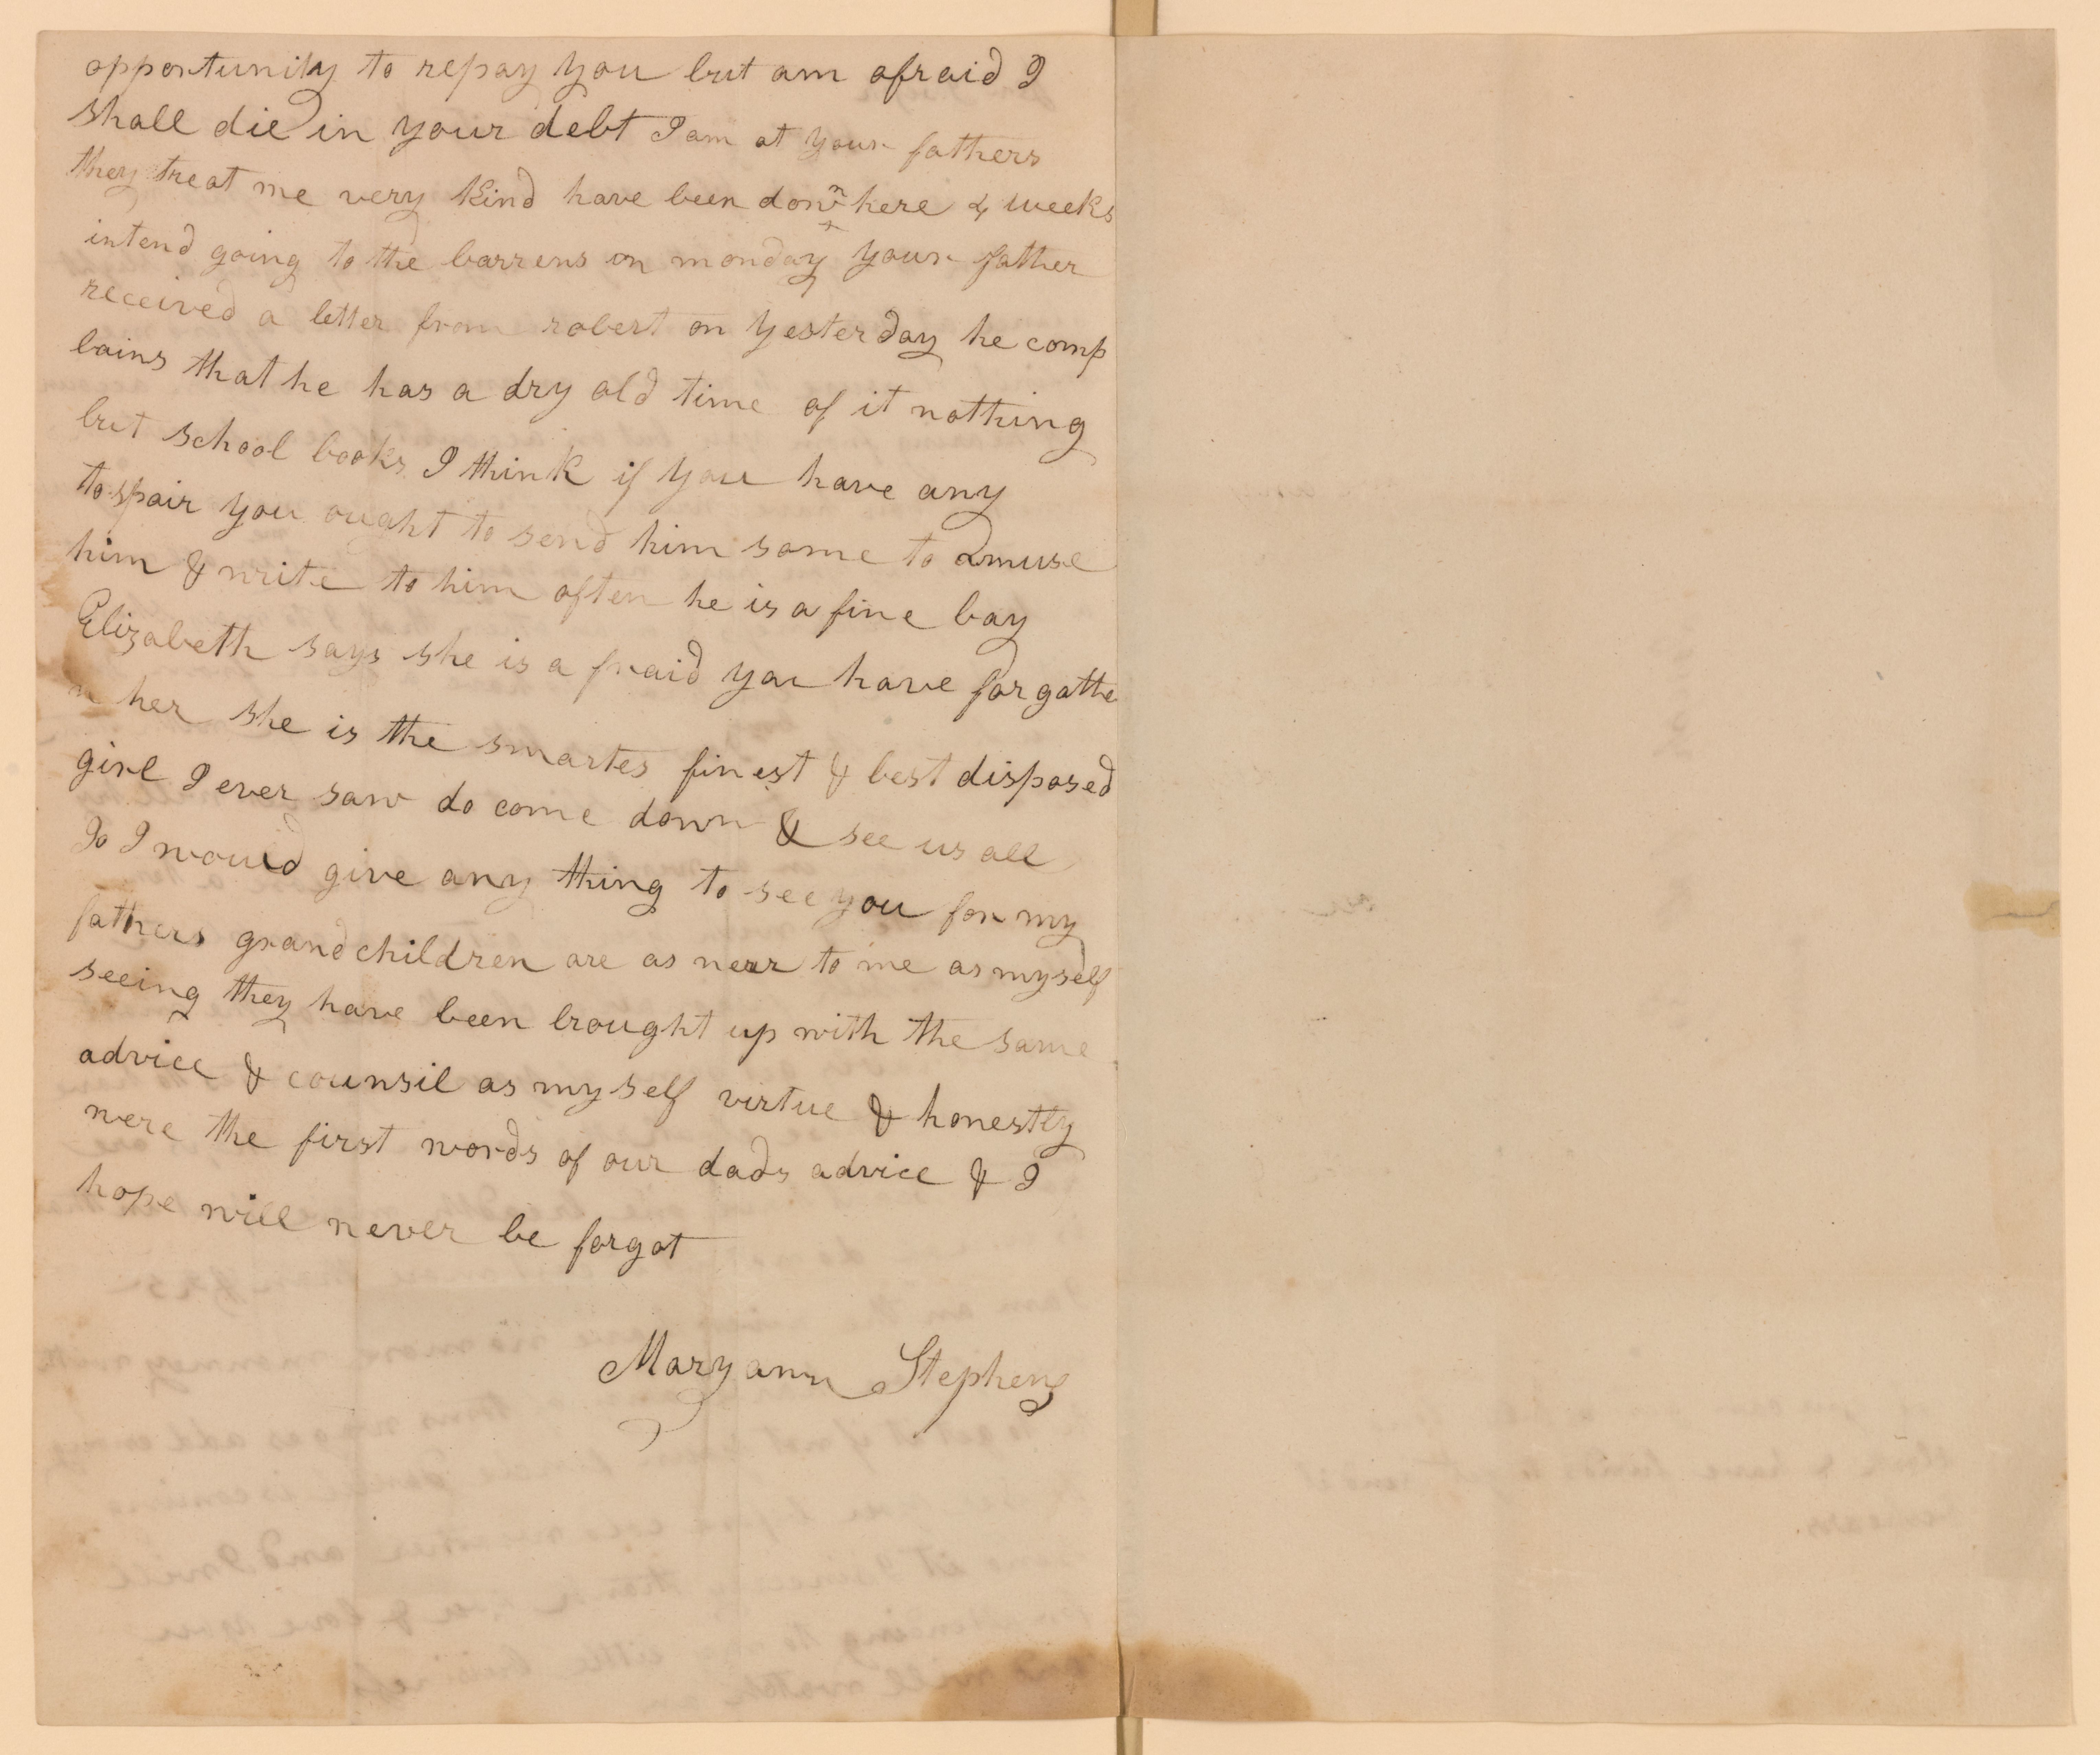 opportunity to repay you but am afraid I
shall die in your debt I am at your fathers
they treat me very kind have been down here 4 weeks
intend going to the barrens on monday your father
received a letter from robert on yesterday he comp
lains that he has a dry old time of it nothing
but school books I think if you have any
to spair you ought to send him some to amuse
him & write to him often he is a fine boy
Elizabeth says she is a fraid you have forgotte
n her she is the smartes finest & best disposed
girl I ever saw do come down & see us all
Jo I would give any thing to see you for my
fathers grandchildren are as near to me as myself
seeing they have been brought up with the same
advice & counsil as myself virtue & honestly
were the first words of our dads advice & I
hope will never be forgot
Maryann Stephens